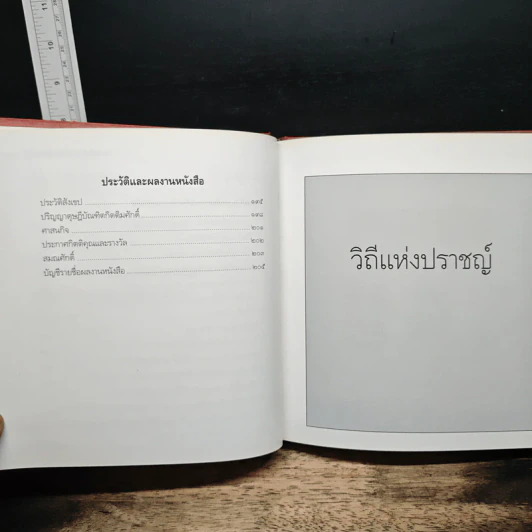 ประวัติและผลงานหนังสือ
ประวัติสังเขป ๑๙๕
ปริญญาดุษฎีบัณฑิตกิตติมศักดิ์ ๑๙๘
ศาสนกิจ ๒๐๑
ประกาศกิตติคุณและรางวัล ๒๐๒
สมณศักดิ์ ๒๐๓
บัญชีรายชื่อผลงานหนังสือ ๒๐๕
วิถีแห่งปราชญ์
11
10
9